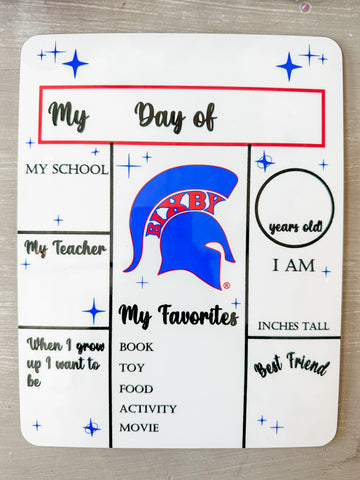 My Day of
MY SCHOOL
My Teacher
When I grow
up I want to
be
BIXBY
®
My Favorites
BOOK
TOY
FOOD
ACTIVITY
MOVIE
years old!
I AM
INCHES TALL
Best Friend